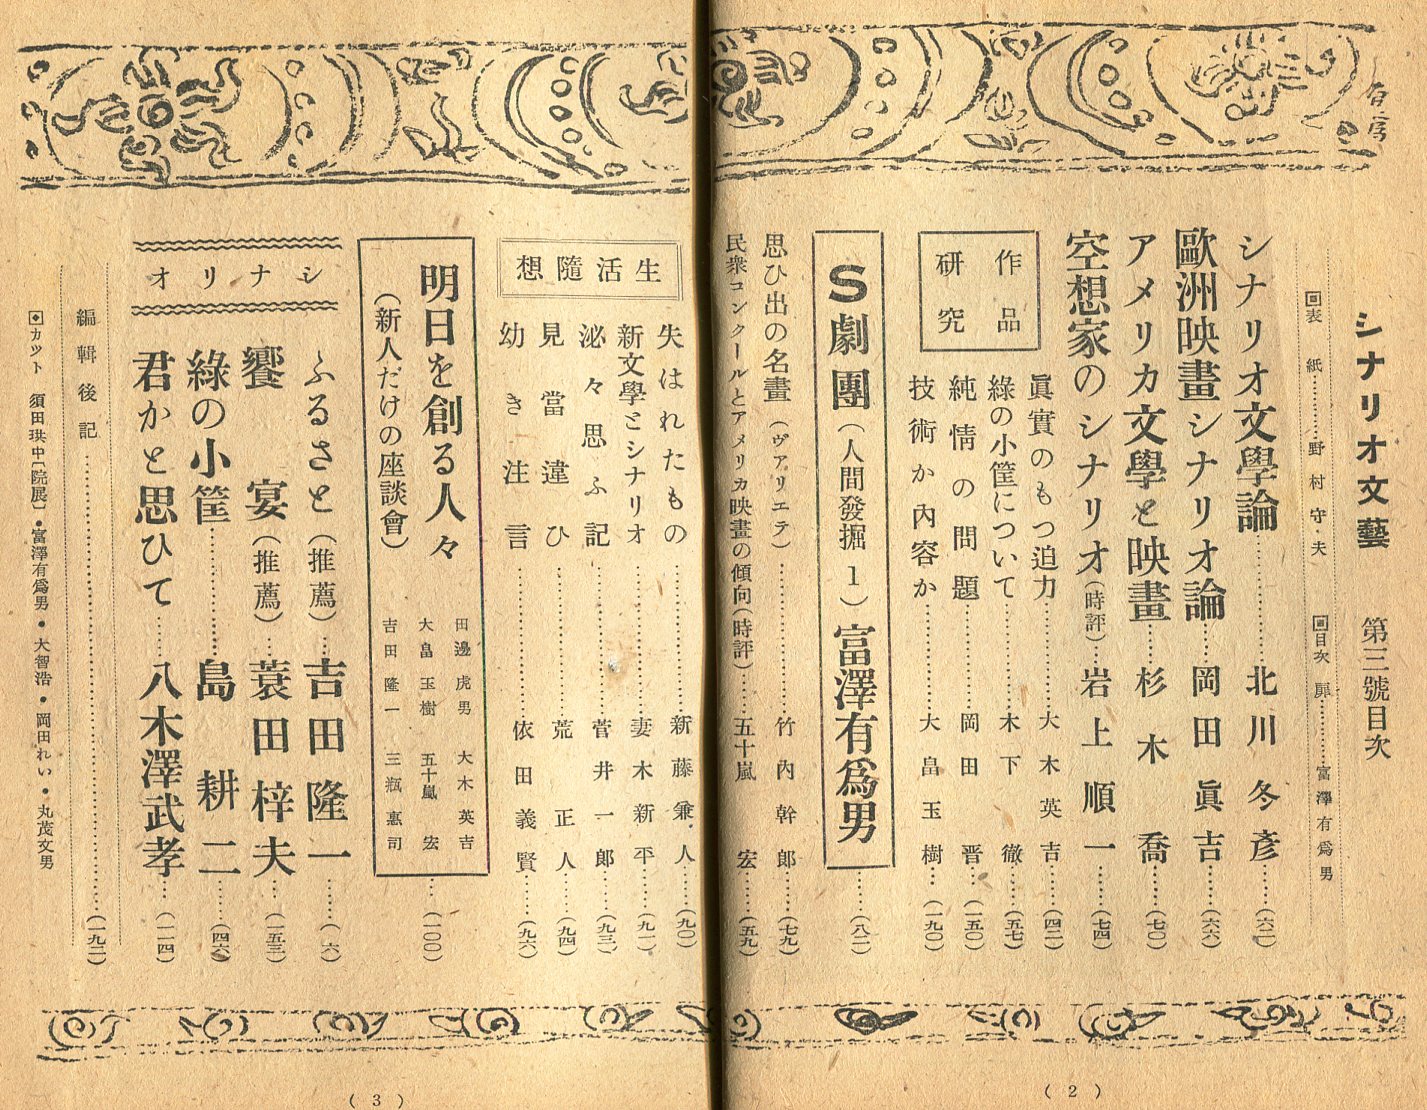 シナリオ文藝 第三號目次
回表紙…………野村守・夫 回目次 扉…………富澤有爲男
シナリオ文學論…………北川冬彥……(六二)
歐洲映畫シナリオ論……岡田眞吉……(六六)
アメリカ文學と映畫……杉木喬……(七〇)
空想家のシナリオ(時評)……岩上順一……(七四)
作品研究
眞實のもつ迫力…………大木英吉……(四二)
綠の小筐について…………木下徹……(五七)
純情の問題…………岡田晋……(一五〇)
技術か內容か…………大畠玉樹……(一九〇)
S劇團(人間發掘1)富澤有爲男……(八二)
思ひ出の名畫(ヴァリエテ)…………竹內幹郎……(七九)
民衆コンクールとアメリカ映畫の傾向(時評)……五十嵐宏……(五九)
生活隨想
失はれたもの…………新藤兼人……(九〇)
新文學とシナリオ…………妻木新平……(九一)
泌々思ふ記…………菅井一郎……(九三)
見當違ひ…………荒正人……(九四)
幼き注言…………依田義賢……(九六)
明日を創る人々
(新人だけの座談會)
田邊虎男 大木英吉
大畠玉樹 五十嵐宏
吉田隆一 三瓶惠司
……(一〇〇)
シナリオ
ふるさと(推薦)……吉田隆一……(六)
饗宴(推薦)……蓑田梓夫……(一五三)
綠の小筐…………島耕二……(四六)
君かと思ひて……八木澤武孝……(一一四)
編輯後記…………(一九二)
カツト 須田珙中[院展]・富澤有爲男・大智浩・岡田れい・丸茂文男
( 2 )
( 3 )